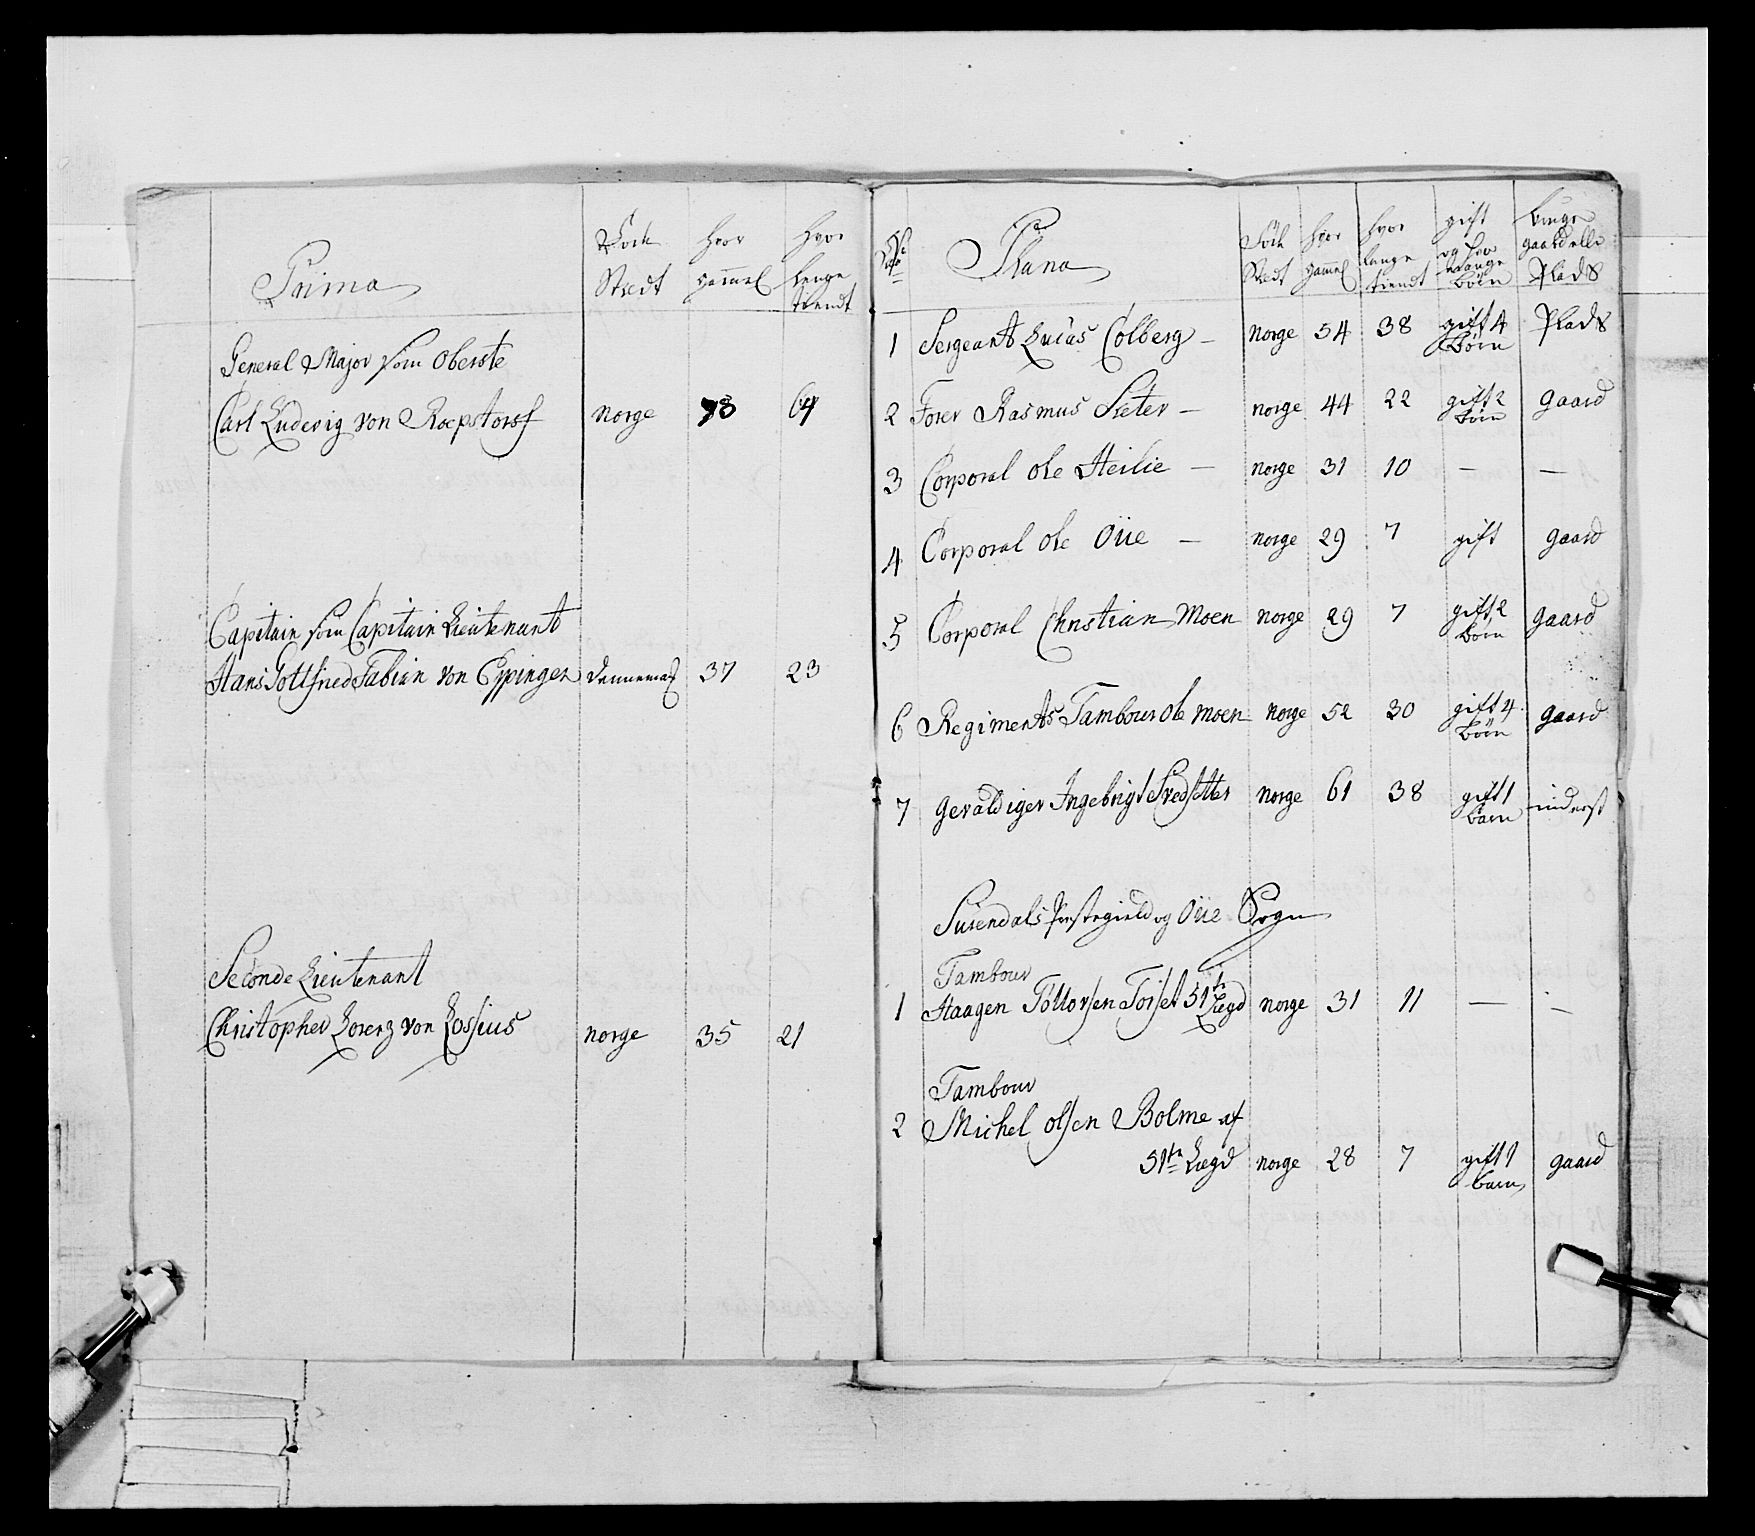 Prima
Föde Stedt
hvor gammel
hvor lenge tiendt
General Major som Oberste
Carl Ludevig von Roepstorff norge 78 64
Capitain som Capitain Lieutenant
Hans Gottfried Fabian von Eppingen dannemarck 37 23
Seconde Lieutenant
Christopher Lorenz von Lossius norge 35 21
Plana
Föde Stedt
hvor gammel
hvor lange tiendt
gift og hvor mange börn
bruger gaard eller Plads
1 Sergeant Lucas Colberg – norge 54 38 gift 4 börn Plads
2 Forer Rasmus Sæter – norge 44 22 gift 2 börn gaard
3 Corporal Ole Heilie – norge 31 10 – –
4 Corporal Ole Öüe – norge 29 7 gift gaard
5 Corporal Christian Moen norge 29 7 gift 2 börn gaard
6 Regiments Tambour Ole moen norge 52 30 gift 4 börn gaard
7 gevaldiger Ingebrigt Svedsetter norge 61 38 gift 1 barn inderst
Surendals Præstegield og Öüe Sogn
Tambour
1 Haagen Tollorsen Toiset 51te Lægd norge 31 11 – –
Tambour
2 Michel olsen Bolme af
51te Lægd norge 28 7 gift 1 barn gaard